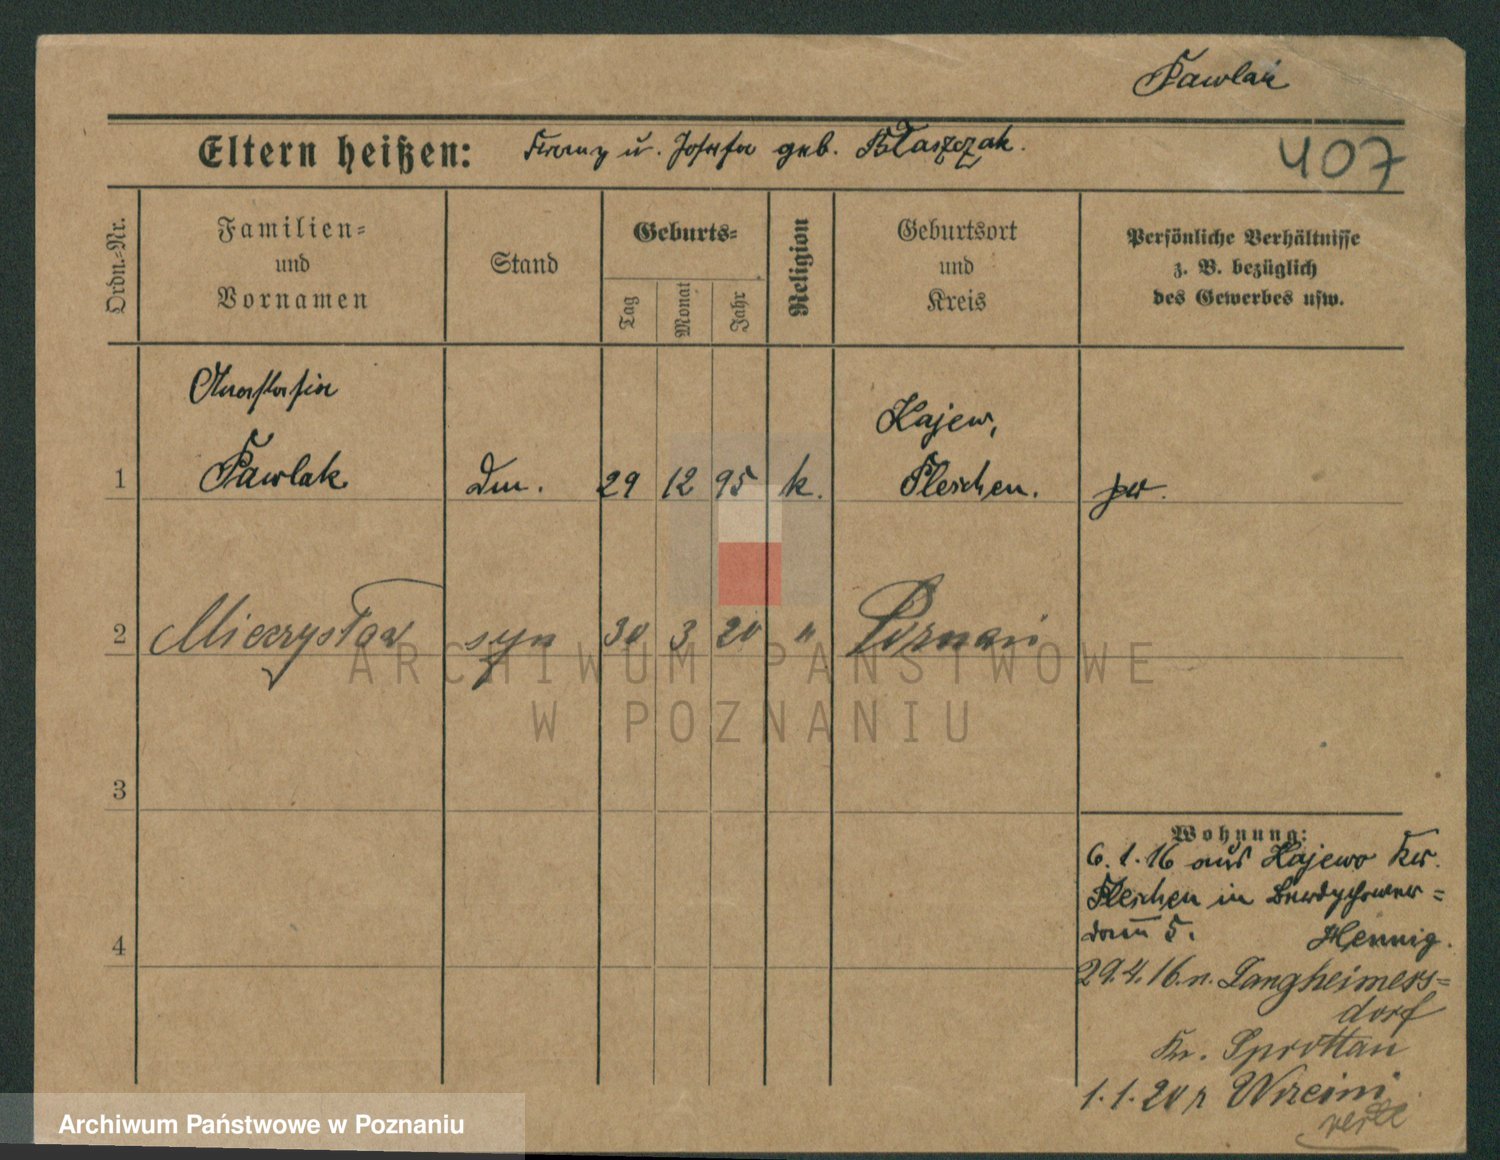 Pawlak
Eltern heißen: Franz u. Josefa geb. Błaszczak.
407
Ordn.-Nr.
Familien-
und
Vornamen
Stand
Geburts-
Tag
Monat
Jahr
Religion
Geburtsort
und
Kreis
Persönliche Verhältnisse
z. B. bezüglich
des Gewerbes usw.
Anastasia
Kajew,
1 Pawlak Dm. 29 12 95 k. Pleschen.
2 Mieczysław syn 30 3 20 " Poznań
ARCHIWUM PAŃSTWOWE
W POZNANIU
3
Wohnung:
6.1.16 aus Kajewo Kr.
Pleschen in Berdychower-
damm 5. Hennig.
4
29.4.16. n. Langheimers-
dorf
Kr. Sprottau
1.1.20 z
Archiwum Państwowe w Poznaniu